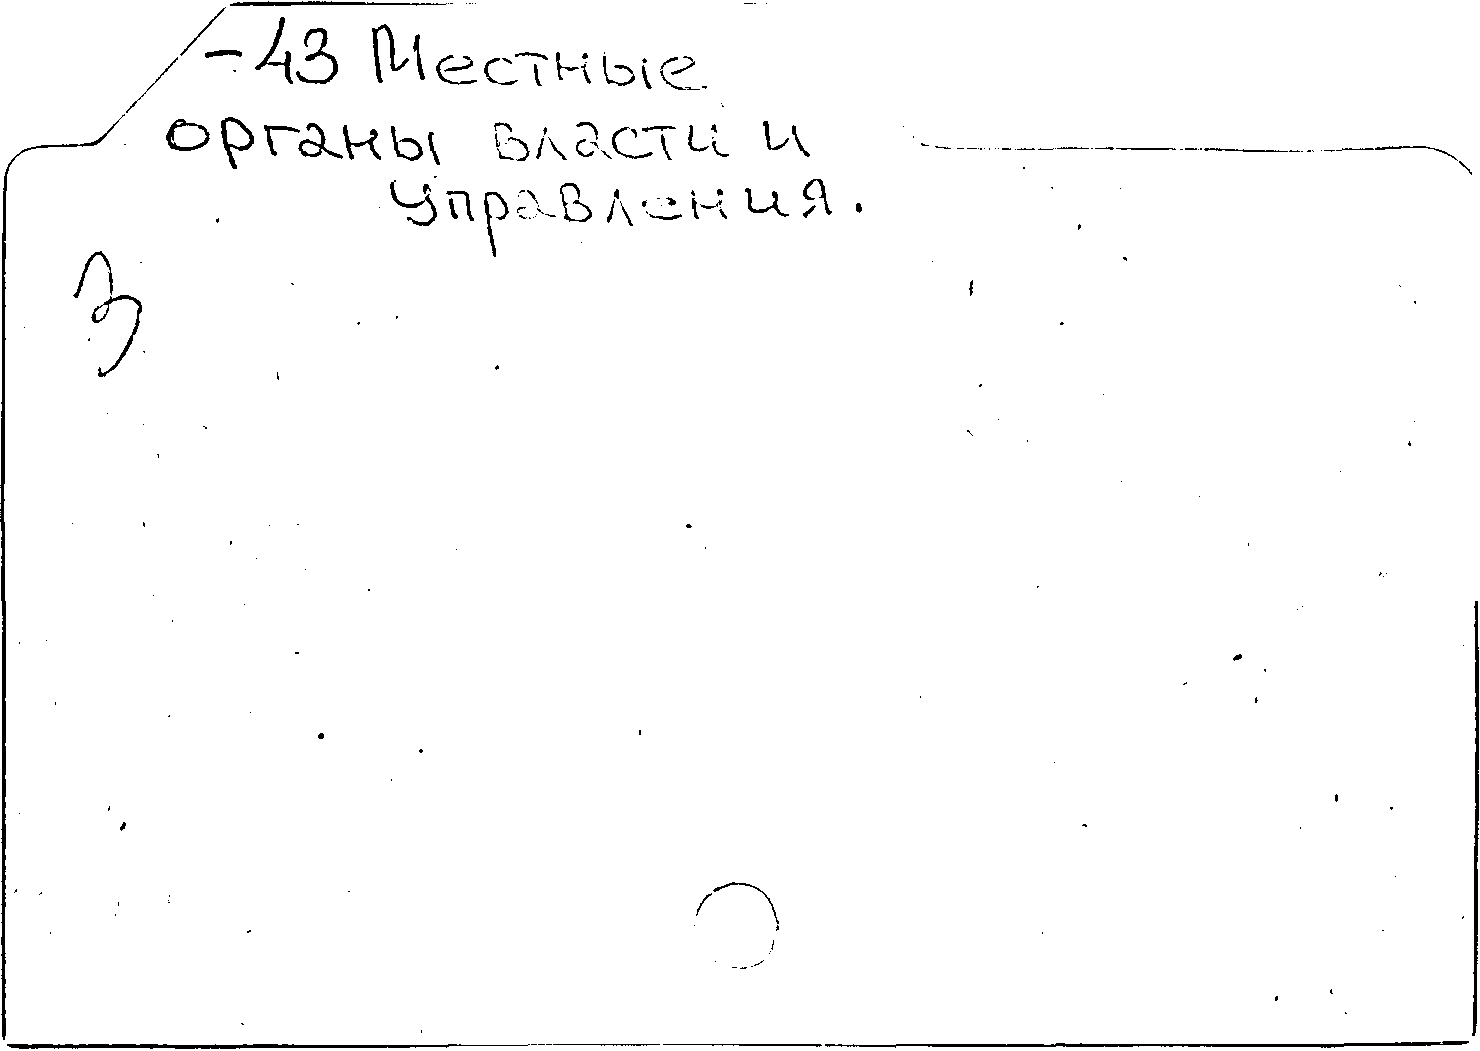 -43 Местные
органы власти и
управления.
3